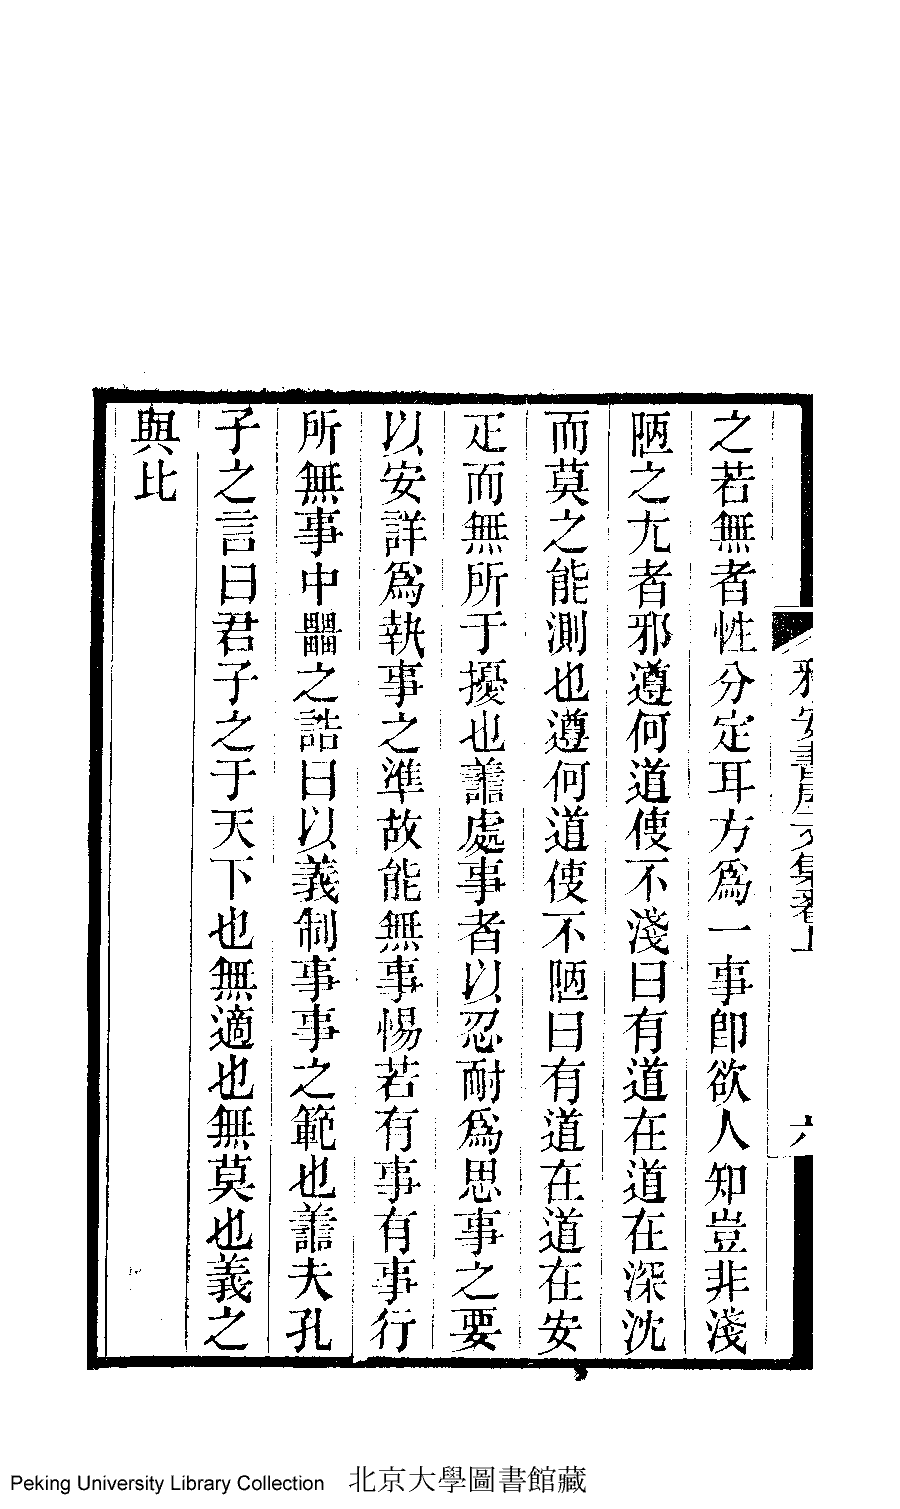 之若無者性分定耳方爲一事卽欲人知豈非淺
陋之尢者邪遵何道使不淺曰有道在道在深沈
而莫之能測也遵何道使不陋曰有道在道在安
疋而無所于擾也譱處事者以忍耐爲思事之要
以安詳爲執事之準故能無事惕若有事有事行
所無事中畾之誥曰以義制事事之範也譱夫孔
子之言曰君子之于天下也無適也無莫也義之
與比
六
Peking University Library Collection 北京大學圖書館藏